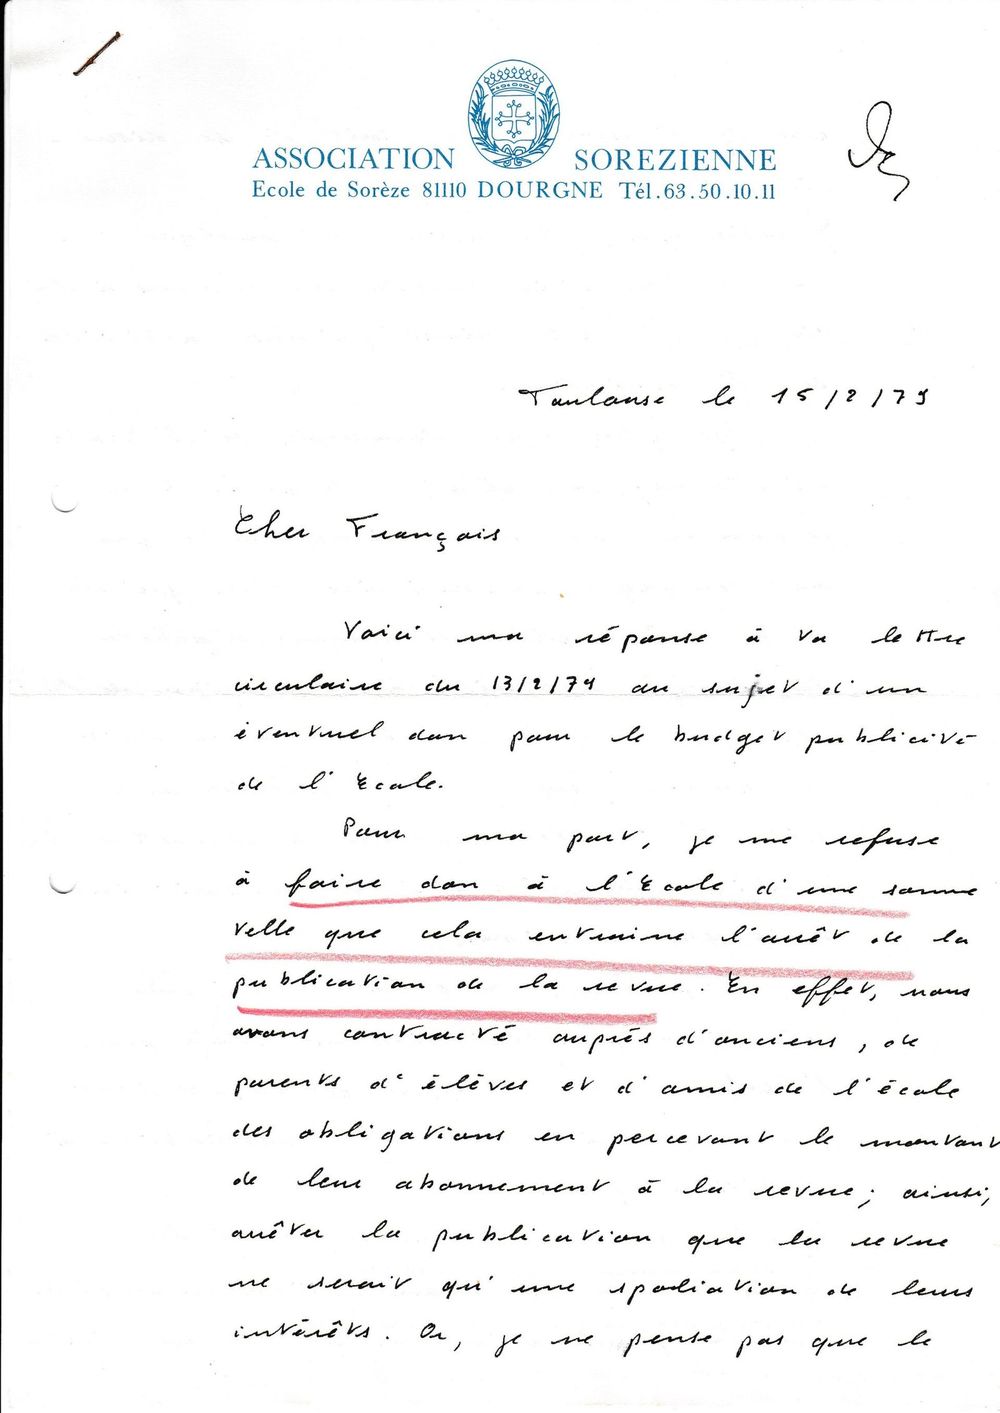 ASSOCIATION SOREZIENNE
Ecole de Sorèze 81110 DOURGNE Tél.63.50.10.11
Toulouse le 15/2/79
Cher François
Voici ma réponse à ta lettre
circulaire du 13/2/79 au sujet d'un
éventuel don pour le budget publicité
de l'Ecole.
Pour ma part, je me refuse
à faire don à l'Ecole d'une somme
telle que cela entraine l'arrêt de la
publication de la revue. En effet, nous
avons contracté auprès d'anciens, de
parents d'élèves et d'amis de l'école
des obligations en percevant le montant
de leur abonnement à la revue ; ainsi,
arrêter la publication que la revue
ne serait qu'une spoliation de leurs
intérêts. Or, je ne pense pas que le